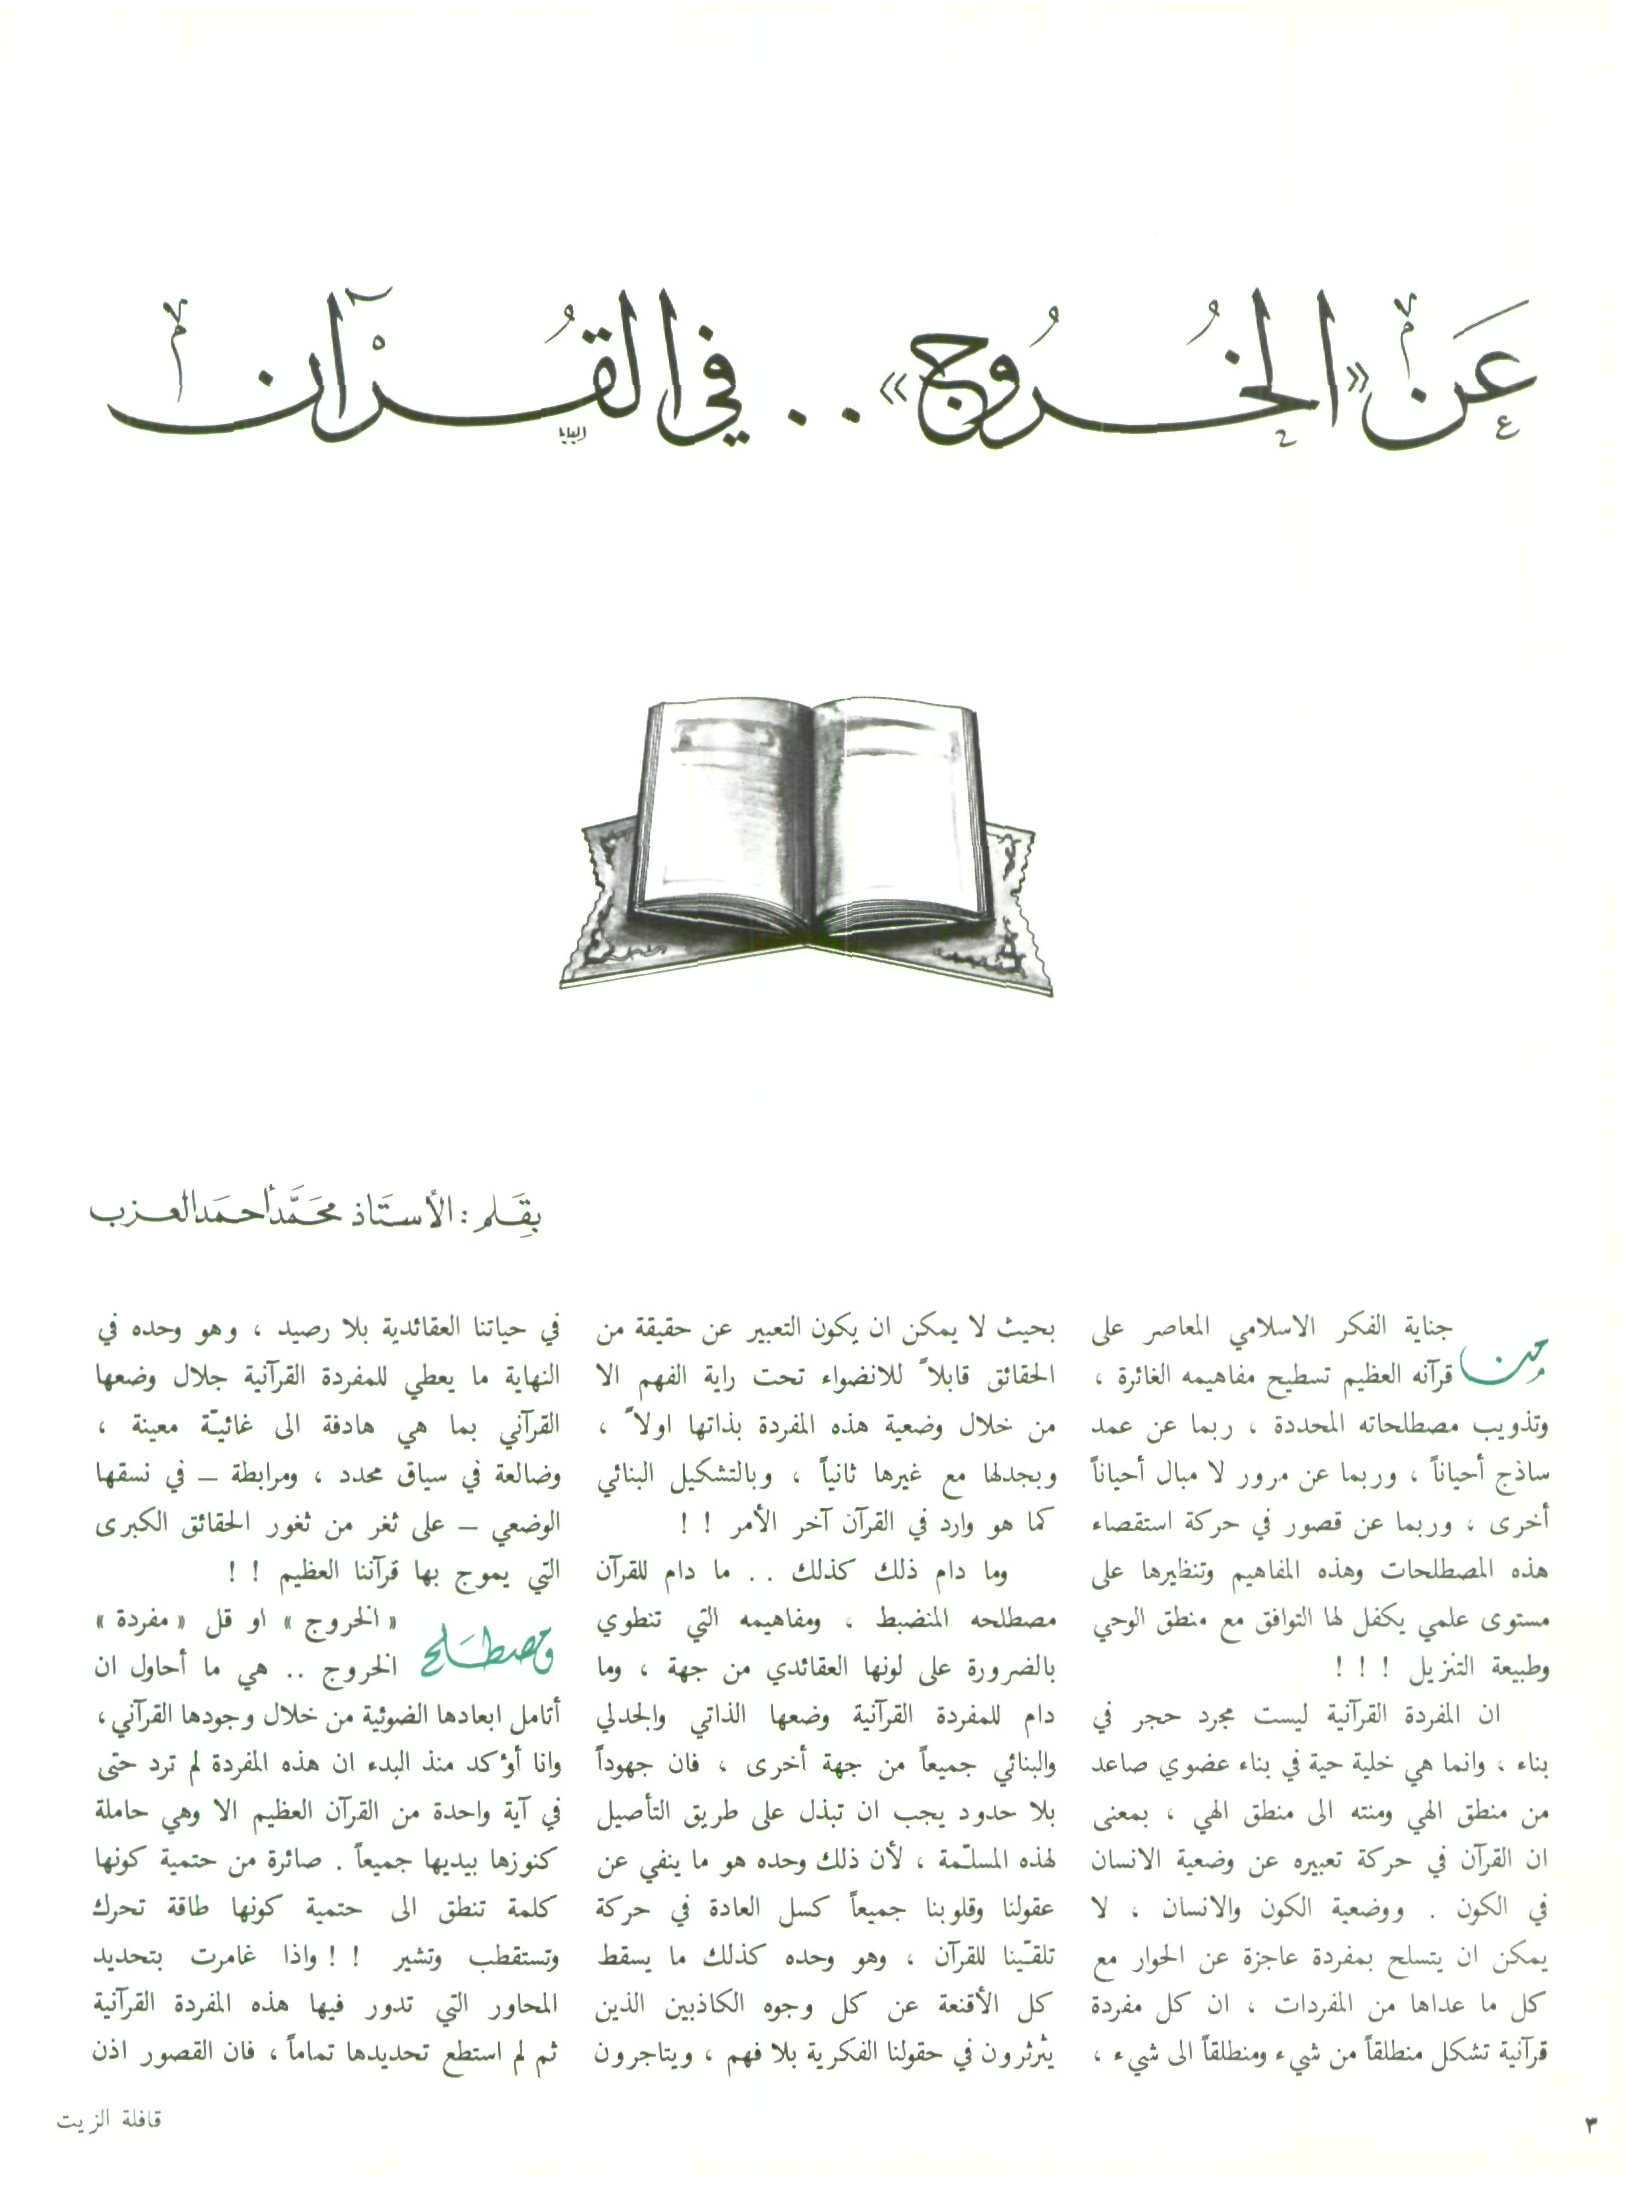 عَن «الخُرُوج» .. في القُرْآن
بِقَلم : الأستَاذ محَمَّد أحمَد العزب
من جناية الفكر الاسلامي المعاصر على
قرآنه العظيم تسطيح مفاهيمه الغائرة ،
وتذويب مصطلحاته المحددة ، ربما عن عمد
ساذج أحياناً ، وربما عن مرور لا مبال أحياناً
أخرى ، وربما عن قصور في حركة استقصاء
هذه المصطلحات وهذه المفاهيم وتنظيرها على
مستوى علمي يكفل لها التوافق مع منطق الوحي
وطبيعة التنزيل ! ! !
ان المفردة القرآنية ليست مجرد حجر في
بناء ، وانما هي خلية حية في بناء عضوي صاعد
من منطق الهي ومنته الى منطق الهي ، بمعنى
ان القرآن في حركة تعبيره عن وضعية الانسان
في الكون . ووضعية الكون والانسان ، لا
يمكن ان يتسلح بمفردة عاجزة عن الحوار مع
كل ما عداها من المفردات ، ان كل مفردة
قرآنية تشكل منطلقاً من شيء ومنطلقاً الى شيء ،
بحيث لا يمكن ان يكون التعبير عن حقيقة من
الحقائق قابلاً للانضواء تحت راية الفهم الا
من خلال وضعية هذه المفردة بذاتها اولاً ،
وبجدلها مع غيرها ثانياً ، وبالتشكيل البنائي
كما هو وارد في القرآن آخر الأمر ! !
وما دام ذلك كذلك .. ما دام للقرآن
مصطلحه المنضبط ، ومفاهيمه التي تنطوي
بالضرورة على لونها العقائدي من جهة ، وما
دام للمفردة القرآنية وضعها الذاتي والجدلي
والبنائي جميعاً من جهة أخرى ، فان جهوداً
بلا حدود يجب ان تبذل على طريق التأصيل
لهذه المسلّمة ، لأن ذلك وحده هو ما ينفي عن
عقولنا وقلوبنا جميعاً كسل العادة في حركة
تلقّينا للقرآن ، وهو وحده كذلك ما يسقط
كل الأقنعة عن كل وجوه الكاذبين الذين
يثرثرون في حقولنا الفكرية بلا فهم ، ويتاجرون
في حياتنا العقائدية بلا رصيد ، وهو وحده في
النهاية ما يعطي للمفردة القرآنية جلال وضعها
القرآني بما هي هادفة الى غائيّة معينة ،
وضالعة في سياق محدد ، ومرابطة – في نسقها
الوضعي – على ثغر من ثغور الحقائق الكبرى
التي يموج بها قرآننا العظيم ! !
ومصطلح « الخروج » او قل « مفردة »
الخروج .. هي ما أحاول ان
أتامل ابعادها الضوئية من خلال وجودها القرآني ،
وانا أؤكد منذ البدء ان هذه المفردة لم ترد حتى
في آية واحدة من القرآن العظيم الا وهي حاملة
كنوزها بيديها جميعاً . صائرة من حتمية كونها
كلمة تنطق الى حتمية كونها طاقة تحرك
وتستقطب وتشير ! ! واذا غامرت بتحديد
المحاور التي تدور فيها هذه المفردة القرآنية
ثم لم استطع تحديدها تماماً ، فان القصور اذن
٣
قافلة الزيت